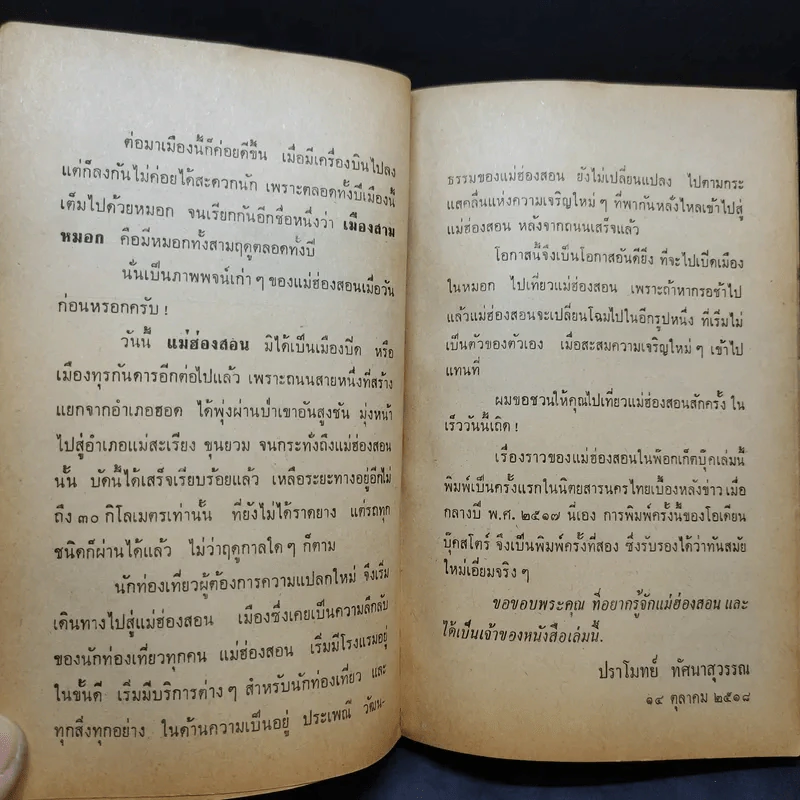 ต่อมาเมืองนี้ก็ค่อยดีขึ้น เมื่อมีเครื่องบินไปลง
แต่ก็ลงกันไม่ค่อยได้สะดวกนัก เพราะตลอดทั้งปีเมืองนี้
เต็มไปด้วยหมอก จนเรียกกันอีกชื่อหนึ่งว่า เมืองสาม
หมอก คือมีหมอกทั้งสามฤดูตลอดทั้งปี
นั่นเป็นภาพพจน์เก่า ๆ ของแม่ฮ่องสอนเมื่อวัน
ก่อนหรอกครับ !
วันนี้ แม่ฮ่องสอน มิได้เป็นเมืองปิด หรือ
เมืองทุรกันดารอีกต่อไปแล้ว เพราะถนนสายหนึ่งที่สร้าง
แยกจากอำเภอฮอด ได้พุ่งผ่านป่าเขาอันสูงชัน มุ่งหน้า
ไปสู่อำเภอแม่สะเรียง ขุนยวม จนกระทั่งถึงแม่ฮ่องสอน
นั้น บัดนี้ได้เสร็จเรียบร้อยแล้ว เหลือระยะทางอยู่อีกไม่
ถึง ๓๐ กิโลเมตรเท่านั้น ที่ยังไม่ได้ราดยาง แต่รถทุก
ชนิดก็ผ่านได้แล้ว ไม่ว่าฤดูกาลใด ๆ ก็ตาม
นักท่องเที่ยวผู้ต้องการความแปลกใหม่ จึงเริ่ม
เดินทางไปสู่แม่ฮ่องสอน เมืองซึ่งเคยเป็นความลึกลับ
ของนักท่องเที่ยวทุกคน แม่ฮ่องสอน เริ่มมีโรงแรมอยู่
ในขั้นดี เริ่มมีบริการต่าง ๆ สำหรับนักท่องเที่ยว และ
ทุกสิ่งทุกอย่าง ในด้านความเป็นอยู่ ประเพณี วัฒน-
ธรรมของแม่ฮ่องสอน ยังไม่เปลี่ยนแปลง ไปตามกระ
แสคลื่นแห่งความเจริญใหม่ ๆ ที่พากันหลั่งไหลเข้าไปสู่
แม่ฮ่องสอน หลังจากถนนเสร็จแล้ว
โอกาสนี้จึงเป็นโอกาสอันดียิ่ง ที่จะไปเปิดเมือง
ในหมอก ไปเที่ยวแม่ฮ่องสอน เพราะถ้าหากรอช้าไป
แล้วแม่ฮ่องสอนจะเปลี่ยนโฉมไปในอีกรูปหนึ่ง ที่เริ่มไม่
เป็นตัวของตัวเอง เมื่อสะสมความเจริญใหม่ ๆ เข้าไป
แทนที่
ผมขอชวนให้คุณไปเที่ยวแม่ฮ่องสอนสักครั้ง ใน
เร็ววันนี้เถิด !
เรื่องราวของแม่ฮ่องสอนในพ๊อกเก็ตบุ๊คเล่มนี้
พิมพ์เป็นครั้งแรกในนิตยสารนครไทยเบื้องหลังข่าว เมื่อ
กลางปี พ.ศ. ๒๕๑๗ นี่เอง การพิมพ์ครั้งนี้ของโอเดียน
บุ๊คสโตร์ จึงเป็นพิมพ์ครั้งที่สอง ซึ่งรับรองได้ว่าทันสมัย
ใหม่เอี่ยมจริง ๆ
ขอขอบพระคุณ ที่อยากรู้จักแม่ฮ่องสอน และ
ได้เป็นเจ้าของหนังสือเล่มนี้.
ปราโมทย์ ทัศนาสุวรรณ
๑๔ ตุลาคม ๒๕๑๘